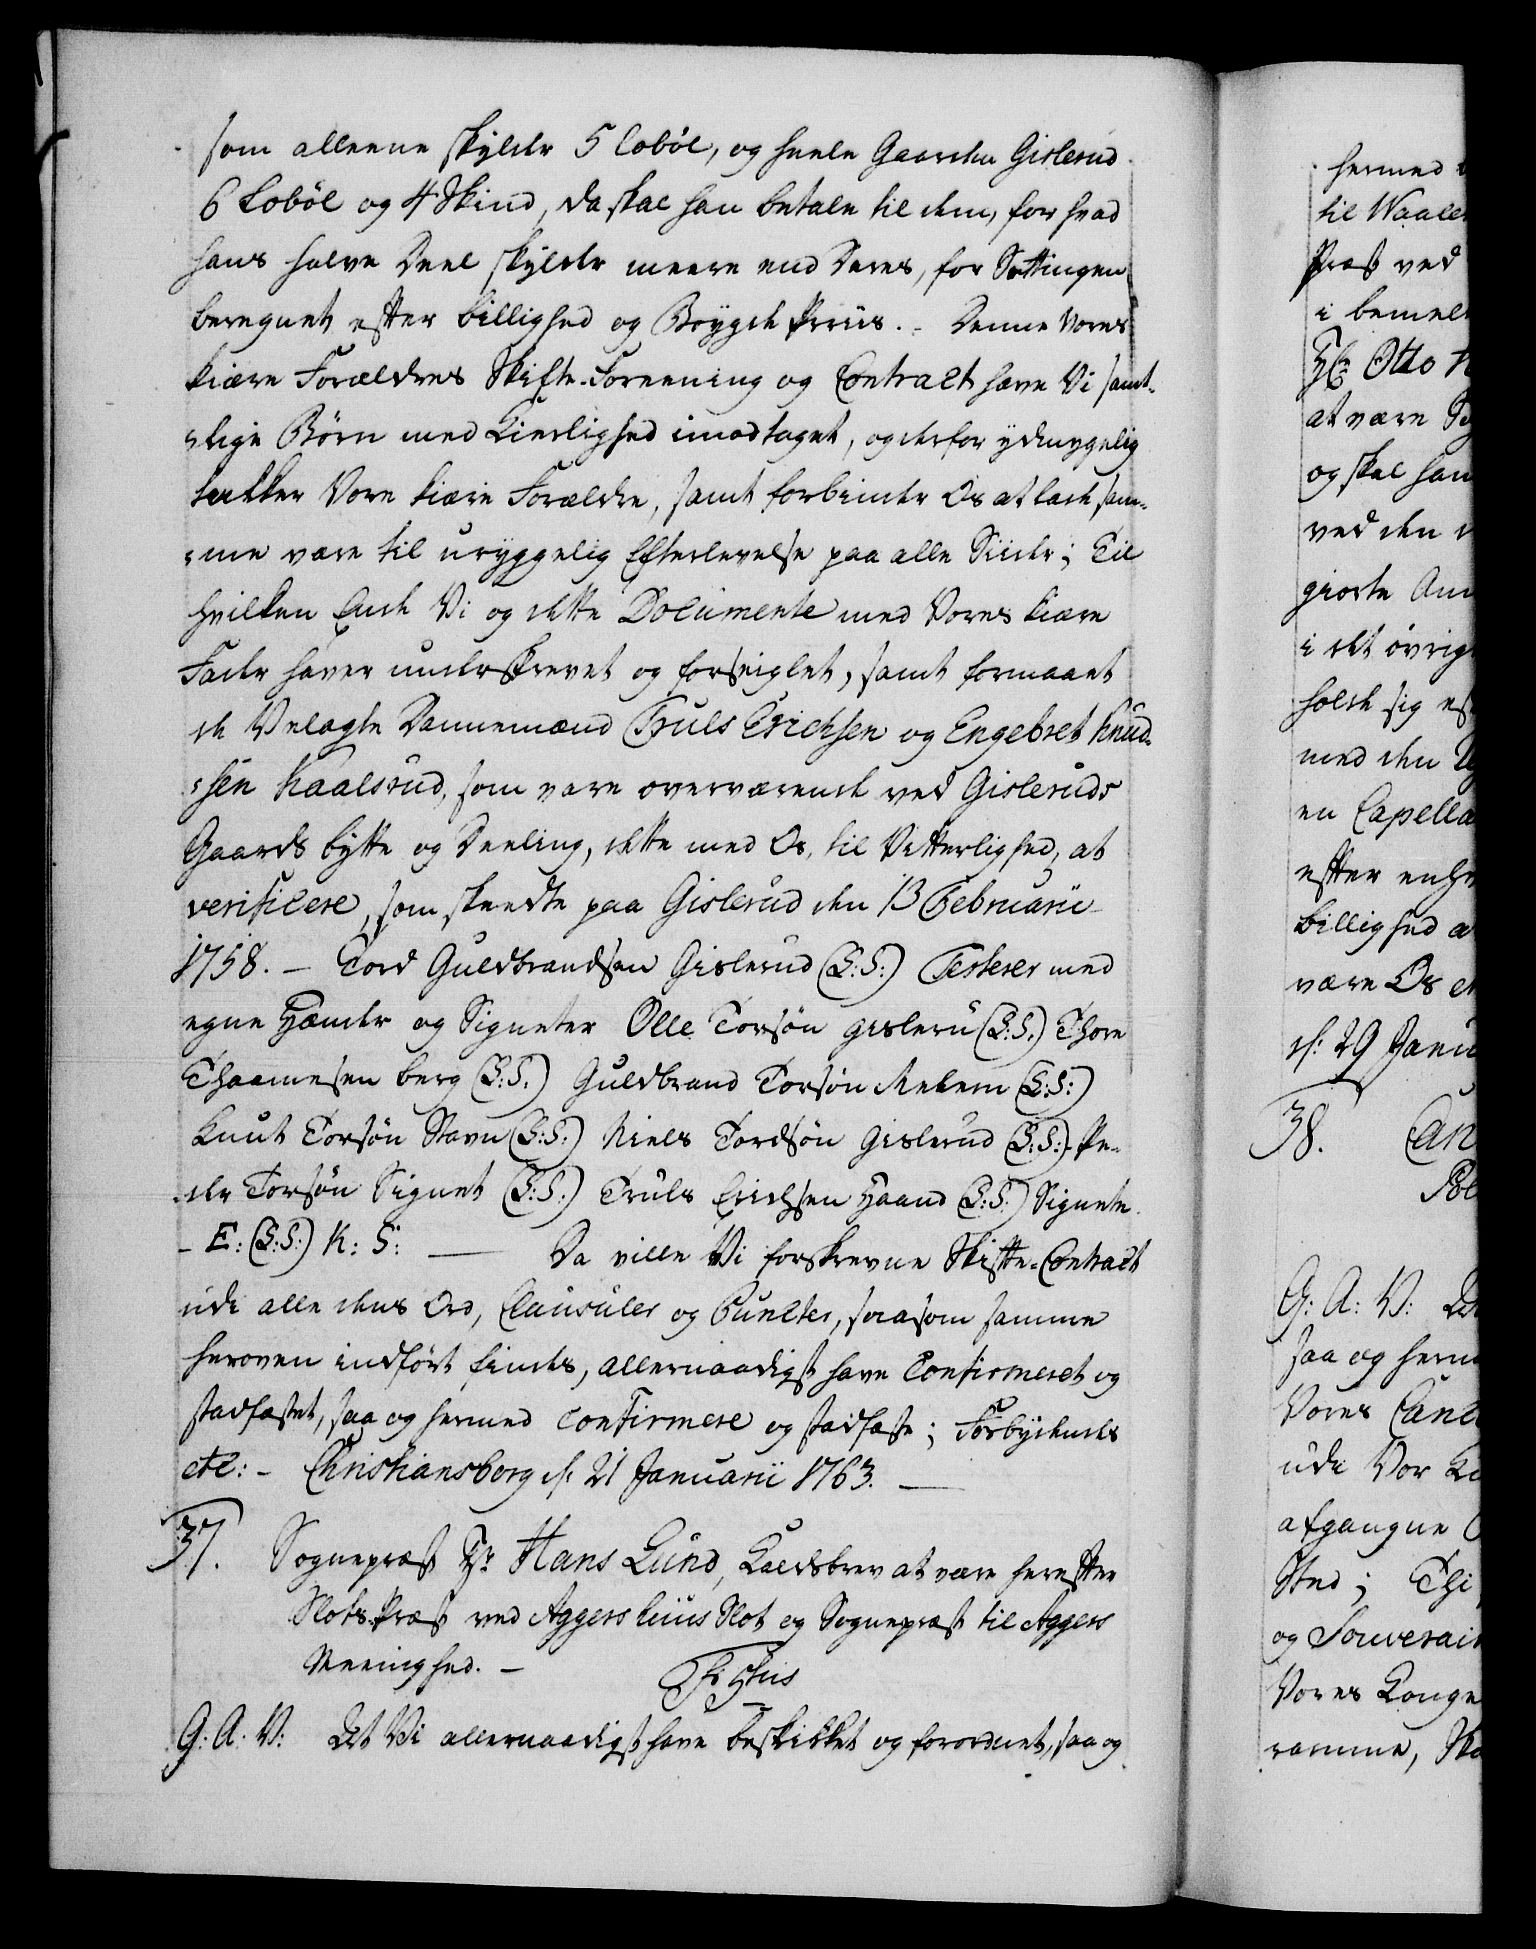 som alleene skylder 5 Lobøl, og heele Gaarden Gislerud
6 Lobøl og 4 Skind, da skal han betale til dem, for hvad
hans halve Deel skylder meere end Deres, for Settingen
beregnet efter billighed og Bøygde Priis. - Denne Vores
kiære Forældres Skifte-Foreening og Contract have Vi samt-
lige Børn med Kierlighed imodtaget, og derfor ydmygelig
takker Vore kiære Forældre, samt forbinder Os at lade sam-
me være til uryggelig Efterlevelse paa alle Siider; Til
hvilken Ende Vi og dette Documente med Vores kiære
Fader haver underskrevet og forseiglet, samt formaaet
de Velagte Dannemænd Truls Erichsen og Engebret Knud-
sen Kaalsrud, som vare overværende ved Gisleruds
Gaards bytte og Deeling, dette med Os, til Vitterlighed, at
verificere, som skeedte paa Gislerud den 13 Februarii
1758. - Tord Guldbrandsen Gislerud (L:S:) Testerer med
egne Hænder og Signeter Olle Torsøn Gisleru (L:S:) Thore
Thaamesen Berg (L:S:) Guldbrand Torsøn Melem (L:S:)
Knut Torsøn Stavn (L:S:) Niels Tordsøn Gislerud (L:S:) Pe-
der Torsøn Signet (L:S:) Truls Erichsen Haand (L:S:) Signete
- E: (L:S:) K: S: — Da ville Vi forskrevne Skifte-Contract
udi alle dens Ord, Clausuler og Puncter, saasom samme
heroven indført findes, allernaadigst have Confirmeret og
stadfæstet, saa og hermed Confirmere og stadfæste; Forbydendes
etc: - Christiansborg d: 21 Januarii 1763. —
37. Sognepræst Hr Hans Lund, Kaldsbrev at være herefter
Slots Præst ved Aggershuus Slot og Sognepræst til Aggers
Meenighed. -
G: A: V: At Vi allernaadigst have beskikket og forordnet, saa og
hermed
til Waale
Præst ved
i bemel
Hr: Otto
at være
og skal han
ved den
giorte
i det øvrig
holde sig
med den
en Capella
efter
billighed
være Os
d: 29 Janu
38.
G: A: V:
saa og herm
Vores
udi Vor
afgangne
Sted; Thi
og Souverain
Vores Konge
ramme,